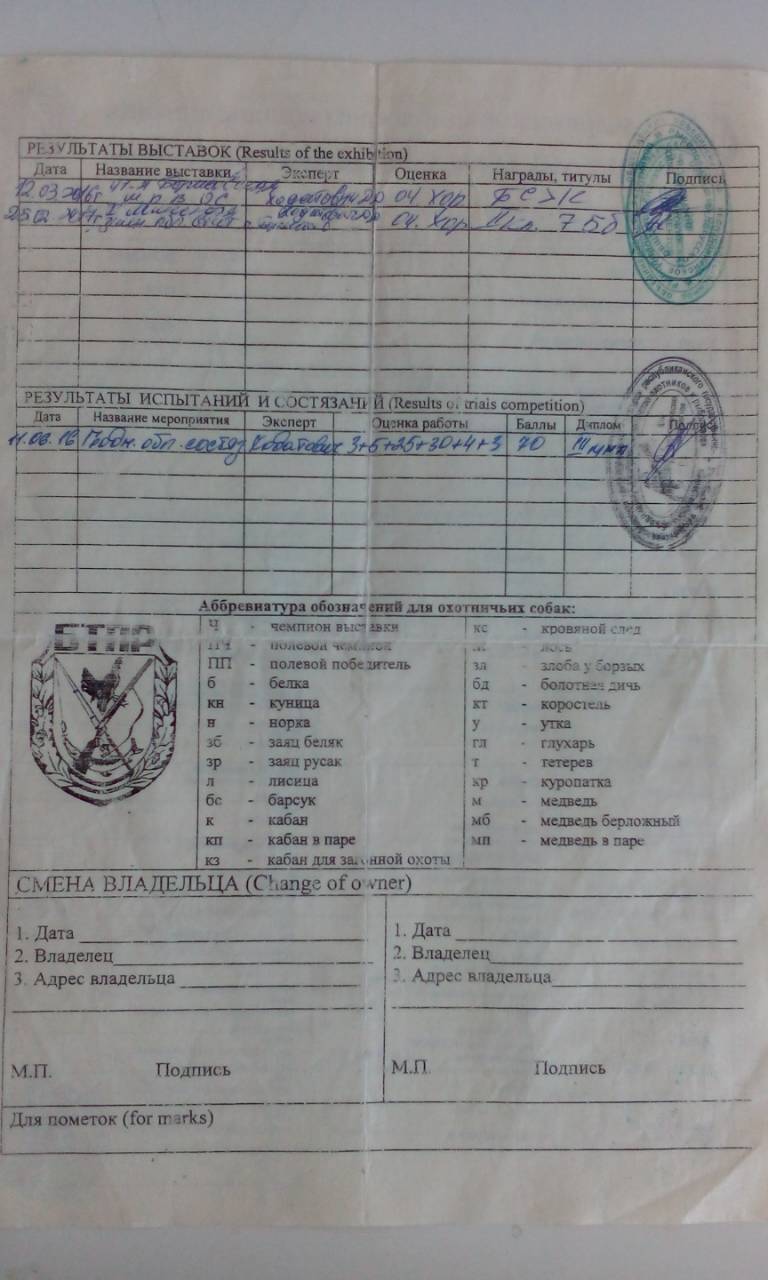 РЕЗУЛЬТАТЫ ВЫСТАВОК (Results of the exhibition)
Дата Название выставки Эксперт Оценка Награды, титулы Подпись
12.03.2016г оч. хор
25.02 оч. хор
РЕЗУЛЬТАТЫ ИСПЫТАНИЙ И СОСТЯЗАНИЙ (Results of trials competition)
Дата Название мероприятия Эксперт Оценка работы Баллы Диплом Подпись
11.06.16 обл. состяз 3+5+25+30+4+3 70 III
Аббревиатура обозначений для охотничьих собак:
БТПР
Ч - чемпион выставки кс - кровяной след
ПЧ - полевой чемпион - лось
ПП - полевой победитель зл - злоба у борзых
б - белка бд - болотная дичь
кн - куница кт - коростель
н - норка у - утка
зб - заяц беляк гл - глухарь
зр - заяц русак т - тетерев
л - лисица кр - куропатка
бс - барсук м - медведь
к - кабан мб - медведь берложный
кп - кабан в паре мп - медведь в паре
кз - кабан для загонной охоты
СМЕНА ВЛАДЕЛЬЦА (Change of owner)
1. Дата 1. Дата
2. Владелец 2. Владелец
3. Адрес владельца 3. Адрес владельца
М.П. Подпись М.П. Подпись
Для пометок (for marks)